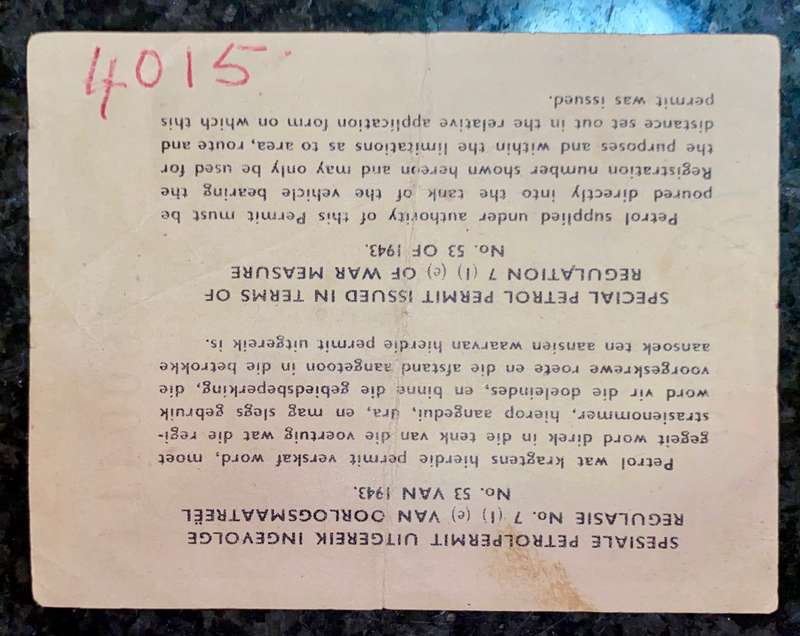 SPESIALE PETROLPERMIT UITGEREIK INGEVOLGE
REGULASIE No. 7 (1) (e) VAN OORLOGSMAATREËL
No. 53 VAN 1943.
Petrol wat kragtens hierdie permit verskaf word, moet
gegeit word direk in die tenk van die voertuig wat die regi-
strasienommer, hierop aangedui, dra, en mag slegs gebruik
word vir die doeleindes, en binne die gebiedsbeperking, die
voorgeskrewe roete en die afstand aangetoon in die betrokke
aansoek ten aansien waarvan hierdie permit uitgereik is.
SPECIAL PETROL PERMIT ISSUED IN TERMS OF
REGULATION 7 (1) (e) OF WAR MEASURE
No. 53 OF 1943.
Petrol supplied under authority of this Permit must be
poured directly into the tank of the vehicle bearing the
Registration number shown hereon and may only be used for
the purposes and within the limitations as to area, route and
distance set out in the relative application form on which this
permit was issued.
4015